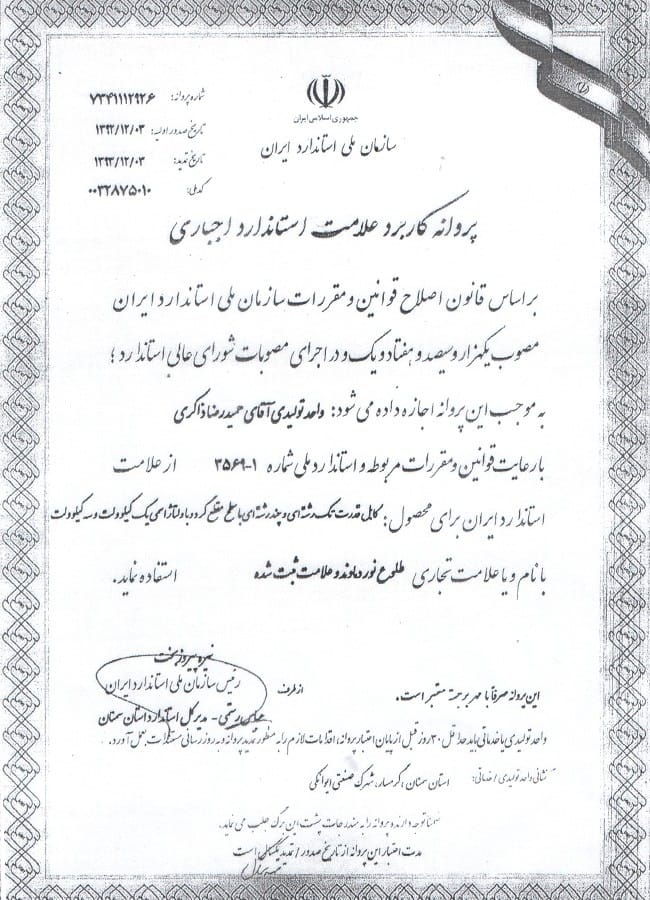 جمهوری اسلامی ایران
سازمان ملی استاندارد ایران
شماره پروانه: ۷۳۴۱۱۱۲۹۲۶
تاریخ صدور اولیه: ۱۳۹۲/۱۲/۰۳
تاریخ تمدید: ۱۳۹۳/۱۲/۰۳
کد ملی: ۰۰۳۲۸۷۵۰۱۰
پروانه کاربرد علامت استاندارد اجباری
بر اساس قانون اصلاح قوانین و مقررات سازمان ملی استاندارد ایران
مصوب یکهزار و سیصد و هفتاد و یک و در اجرای مصوبات شورای عالی استاندارد ؛
به موجب این پروانه اجازه داده می شود: واحد تولیدی آقای حمیدرضا ذاکری
با رعایت قوانین و مقررات مربوطه و استاندارد ملی شماره ۱-۳۵۶۹ از علامت
استاندارد ایران برای محصول: کابل قدرت تک رشته ای و چند رشته ای با سطح مقطع گرد و با ولتاژ اسمی یک کیلوولت و سه کیلوولت
با نام و یا علامت تجاری طلوع نور دماوند و علامت ثبت شده استفاده نماید.
نیره پیروزبخت
رئیس سازمان ملی استاندارد ایران
از طرف
عباس رستمی - مدیر کل استاندارد استان سمنان
این پروانه صرفا با مهر برجسته معتبر است.
واحد تولیدی یا خدماتی باید حداقل ۳۰ روز قبل از پایان اعتبار پروانه، اقدامات لازم را به منظور تمدید پروانه و به روز رسانی مستندات بعمل آورد.
نشانی واحد تولیدی / خدماتی: استان سمنان، گرمسار، شهرک صنعتی ایوانکی
ضمنا توجه دارنده پروانه را به مندرجات پشت این برگ جلب می نماید.
مدت اعتبار این پروانه از تاریخ صدور / تمدید یکسال است